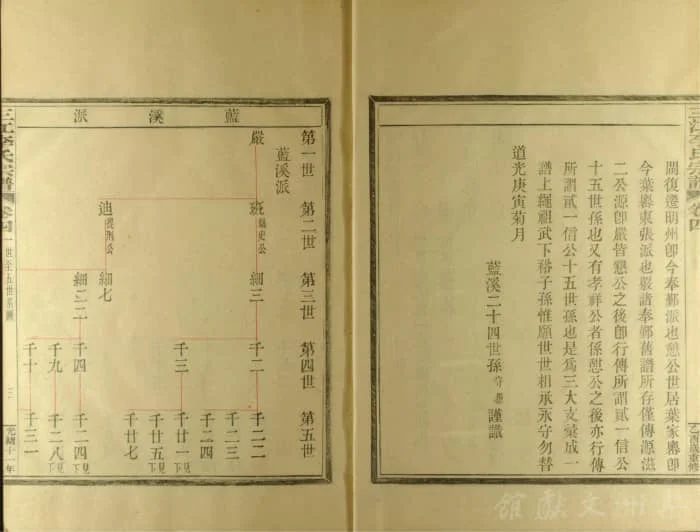 三江李氏宗譜 卷四
乙酉歲重修
閩復遷明州卽今奉鄞派也懲公世居葉家嶴卽
今葉嶴東張派也嚴諸奉鄞舊譜所存僅傳源滋
二公源卽嚴皆懇公之後卽行傳所謂貳一信公
十五世孫也又有孝祥公者係懲公之後亦行傳
所謂貳一信公十五世孫也是爲三大支彙成一
譜上繩祖武下裕子孫惟願世世相承永守勿替
道光庚寅菊月
藍溪二十四世孫 謹識
藍溪派
第一世 第二世 第三世 第四世 第五世
藍溪派
嚴
班 細三 千二 千二二
千二四
千三 千廿一
千廿五
千廿七
迪 提刑公 細七
細二二 千四 千二四
千九 千二八
千十 千三一
三江李氏宗譜 卷四 一世至五世系圖 三 光緒十一年